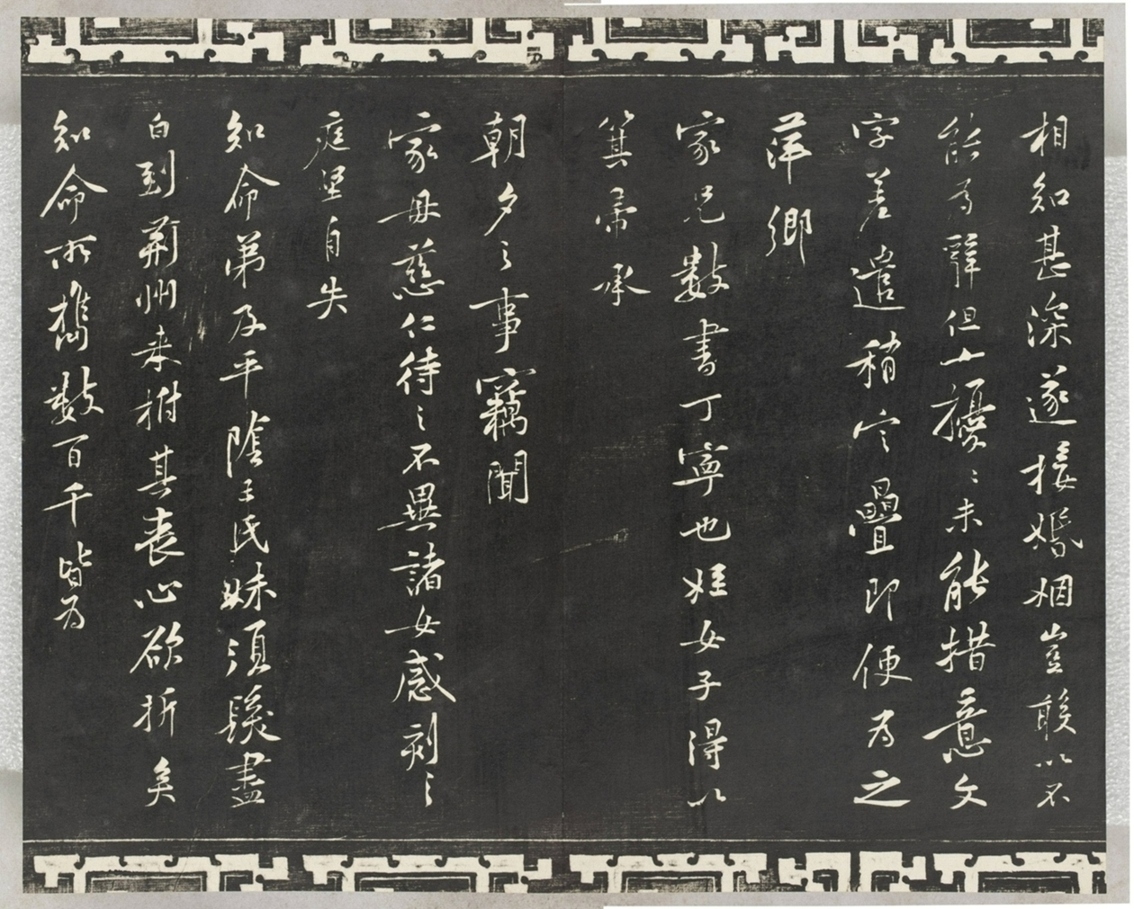 相知甚深遂接婚姻豈敢以不
能为辞但士擾〻未能措意文
字差遣稍定疊即便为之
萍鄉
家兄数書丁寧也姪女子得以
箕帚承
朝夕〻事竊聞
家母慈仁待〻不異諸女感刻〻
庭堅自失
知命弟及平陰王氏妹須髮盡
白到荊州来拊其喪心欲折矣
知命所携数百千皆为